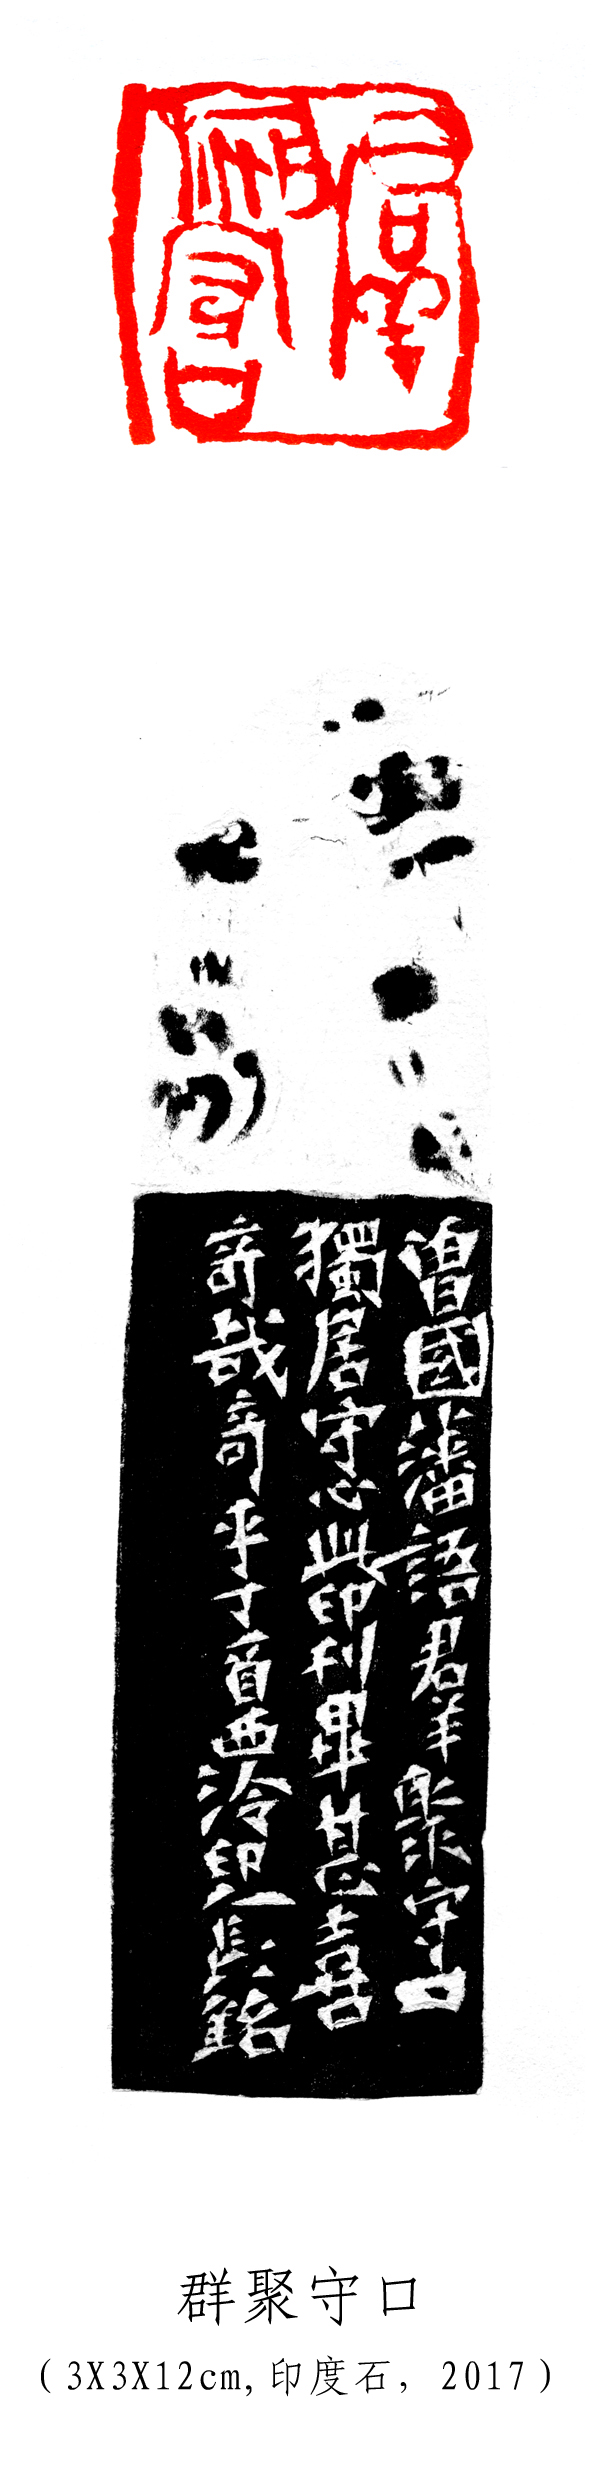 群聚守口
曾國藩語群聚守口
獨居守心此印刊畢甚喜
奇哉奇乎丁酉西泠印長銘
群聚守口
(3X3X12cm,印度石, 2017)